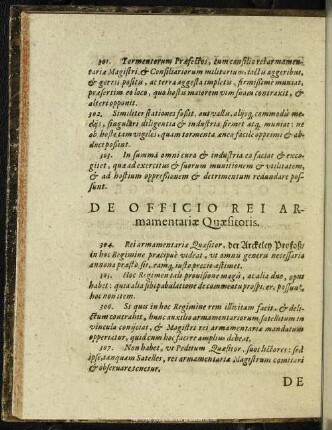 301. Tormentorum Præfectos, cum consilio rei armamen-
tariæ Magistri, & Consiliariorum militarium, tectis aggeribus,
& gerris positis, ac terra aggesta impletis, firmissimè muniat,
præsertim eo loco, quo hostis maiorem vim suam contraxit, &
alteri opponit.
302. Similiter stationes fossis, aut vallo, alijsq; commodis me-
dijs, singulari diligentia & industria firmet atq; muniat: ne
ab hoste tam vigiles, quam tormenta ænea facilè opprimi & ab-
duci possint.
303. In summa omni cura & industria eo faciat & exco-
gitet, quæ ad exercitus & suorum munitionem & utilitatem,
& ad hostium oppressionem & detrimentum redundare pos-
sunt.
DE OFFICIO REI AR-
mamentariæ Quæsitoris.
304. Rei armamentariæ Quæsitor, der Arckeley Profoß,
in hoc Regimine præcipuè videat, ut omni generi necessaria
annona præstò sit, eamq; iusto precio æstimet.
305. Hoc Regimen tali provisione magis, ac alia duo, opus
habet: quia alia sibi pabulatione de commeatu prospicere possunt,
hoc non item.
306. Si quis in hoc Regimine rem illicitam facit, & de-
lictum contrahit, hunc auxilio armamentariorum satellitum in
vincula conijciat, & Magistri rei armamentariæ mandatum
opperiatur, quid cum hoc facere amplius debeat.
307. Non habet, ut Peditum Quæsitor, suos lictores: sed
ipse, tanquam Satelles, rei armamentariæ Magistrum comitari
& observare tenetur.
DE